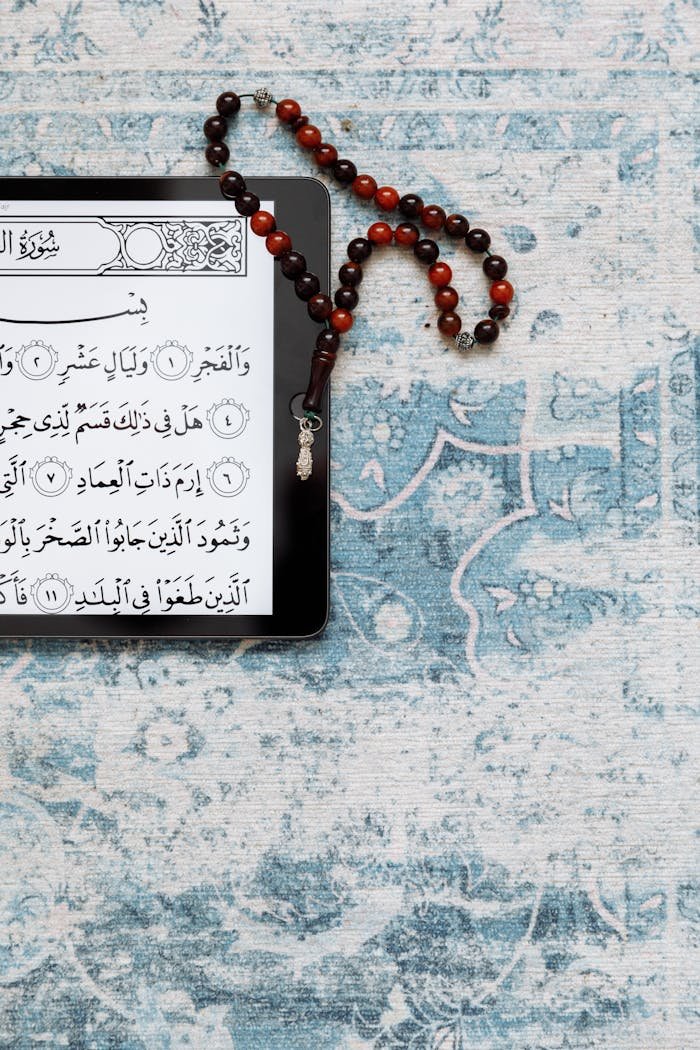 سُورَةُ ال
بِسْ
وَٱلْفَجْرِ ١ وَلَيَالٍ عَشْرٍ ٢ وَٱ
٤ هَلْ فِى ذَٰلِكَ قَسَمٌ لِّذِى حِجْرٍ
٦ إِرَمَ ذَاتِ ٱلْعِمَادِ ٧ ٱلَّتِى
وَثَمُودَ ٱلَّذِينَ جَابُوا۟ ٱلصَّخْرَ بِٱلْوَ
ٱلَّذِينَ طَغَوْا۟ فِى ٱلْبِلَٰدِ ١١ فَأَكْ